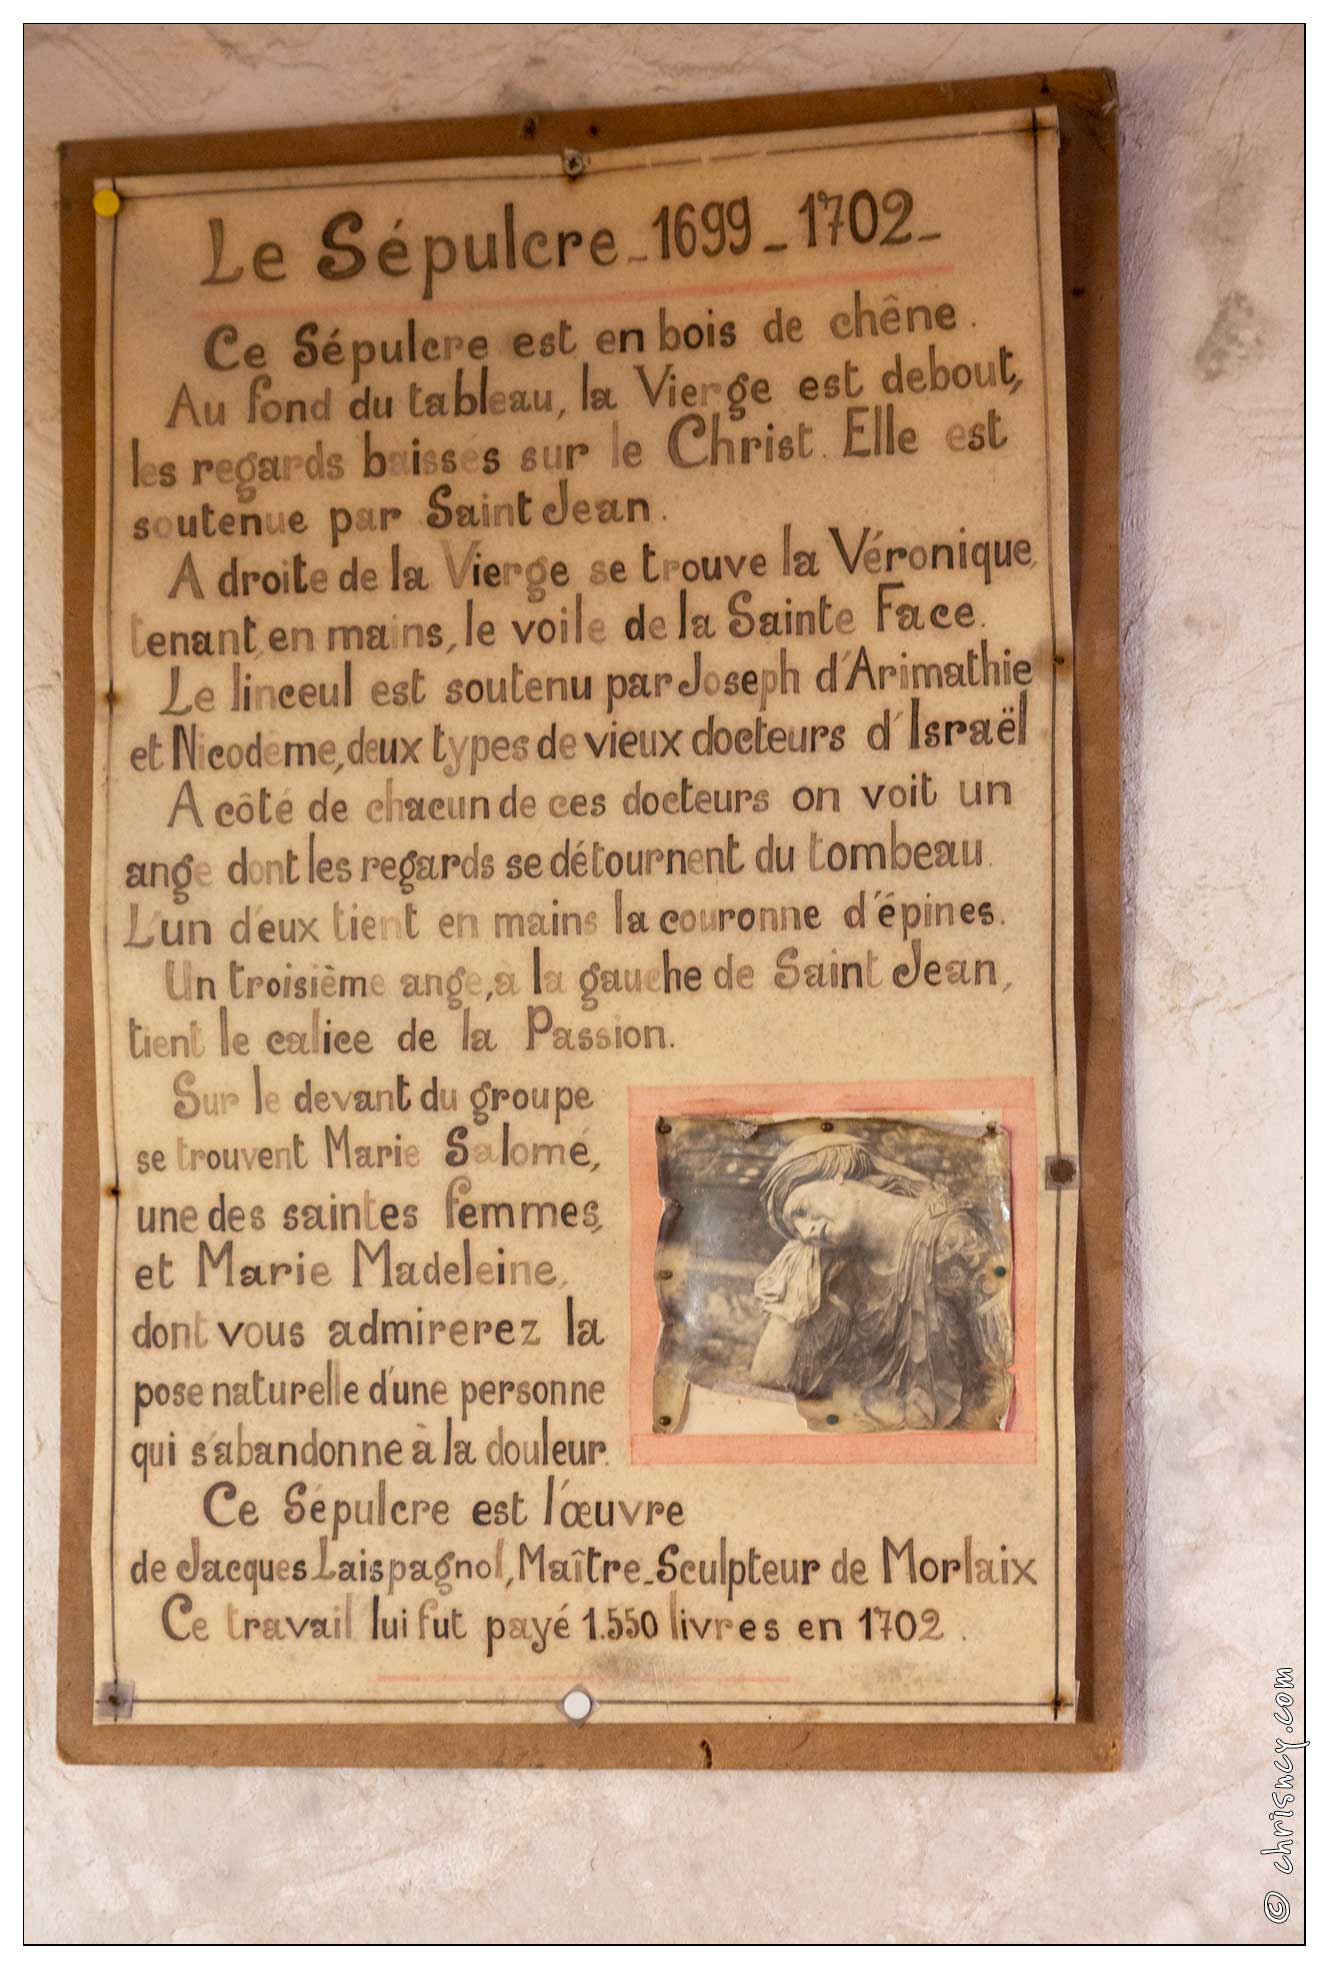 Le Sépulcre_1699_1702_
Ce Sépulcre est en bois de chêne.
Au fond du tableau, la Vierge est debout,
les regards baissés sur le Christ. Elle est
soutenue par Saint Jean.
A droite de la Vierge se trouve la Véronique,
tenant, en mains, le voile de la Sainte Face.
Le linceul est soutenu par Joseph d'Arimathie
et Nicodème, deux types de vieux docteurs d'Israël
A côté de chacun de ces docteurs on voit un
ange dont les regards se détournent du tombeau.
L'un d'eux tient en mains la couronne d'épines.
Un troisième ange, a la gauche de Saint Jean,
tient le calice de la Passion.
Sur le devant du groupe
se trouvent Marie Salomé,
une des saintes femmes,
et Marie Madeleine,
dont vous admirerez la
pose naturelle d'une personne
qui s'abandonne à la douleur.
Ce Sépulcre est l'œuvre
de Jacques Laispagnol, Maître_Sculpteur de Morlaix
Ce travail lui fut payé 1.550 livres en 1702.
© chrisncy.com